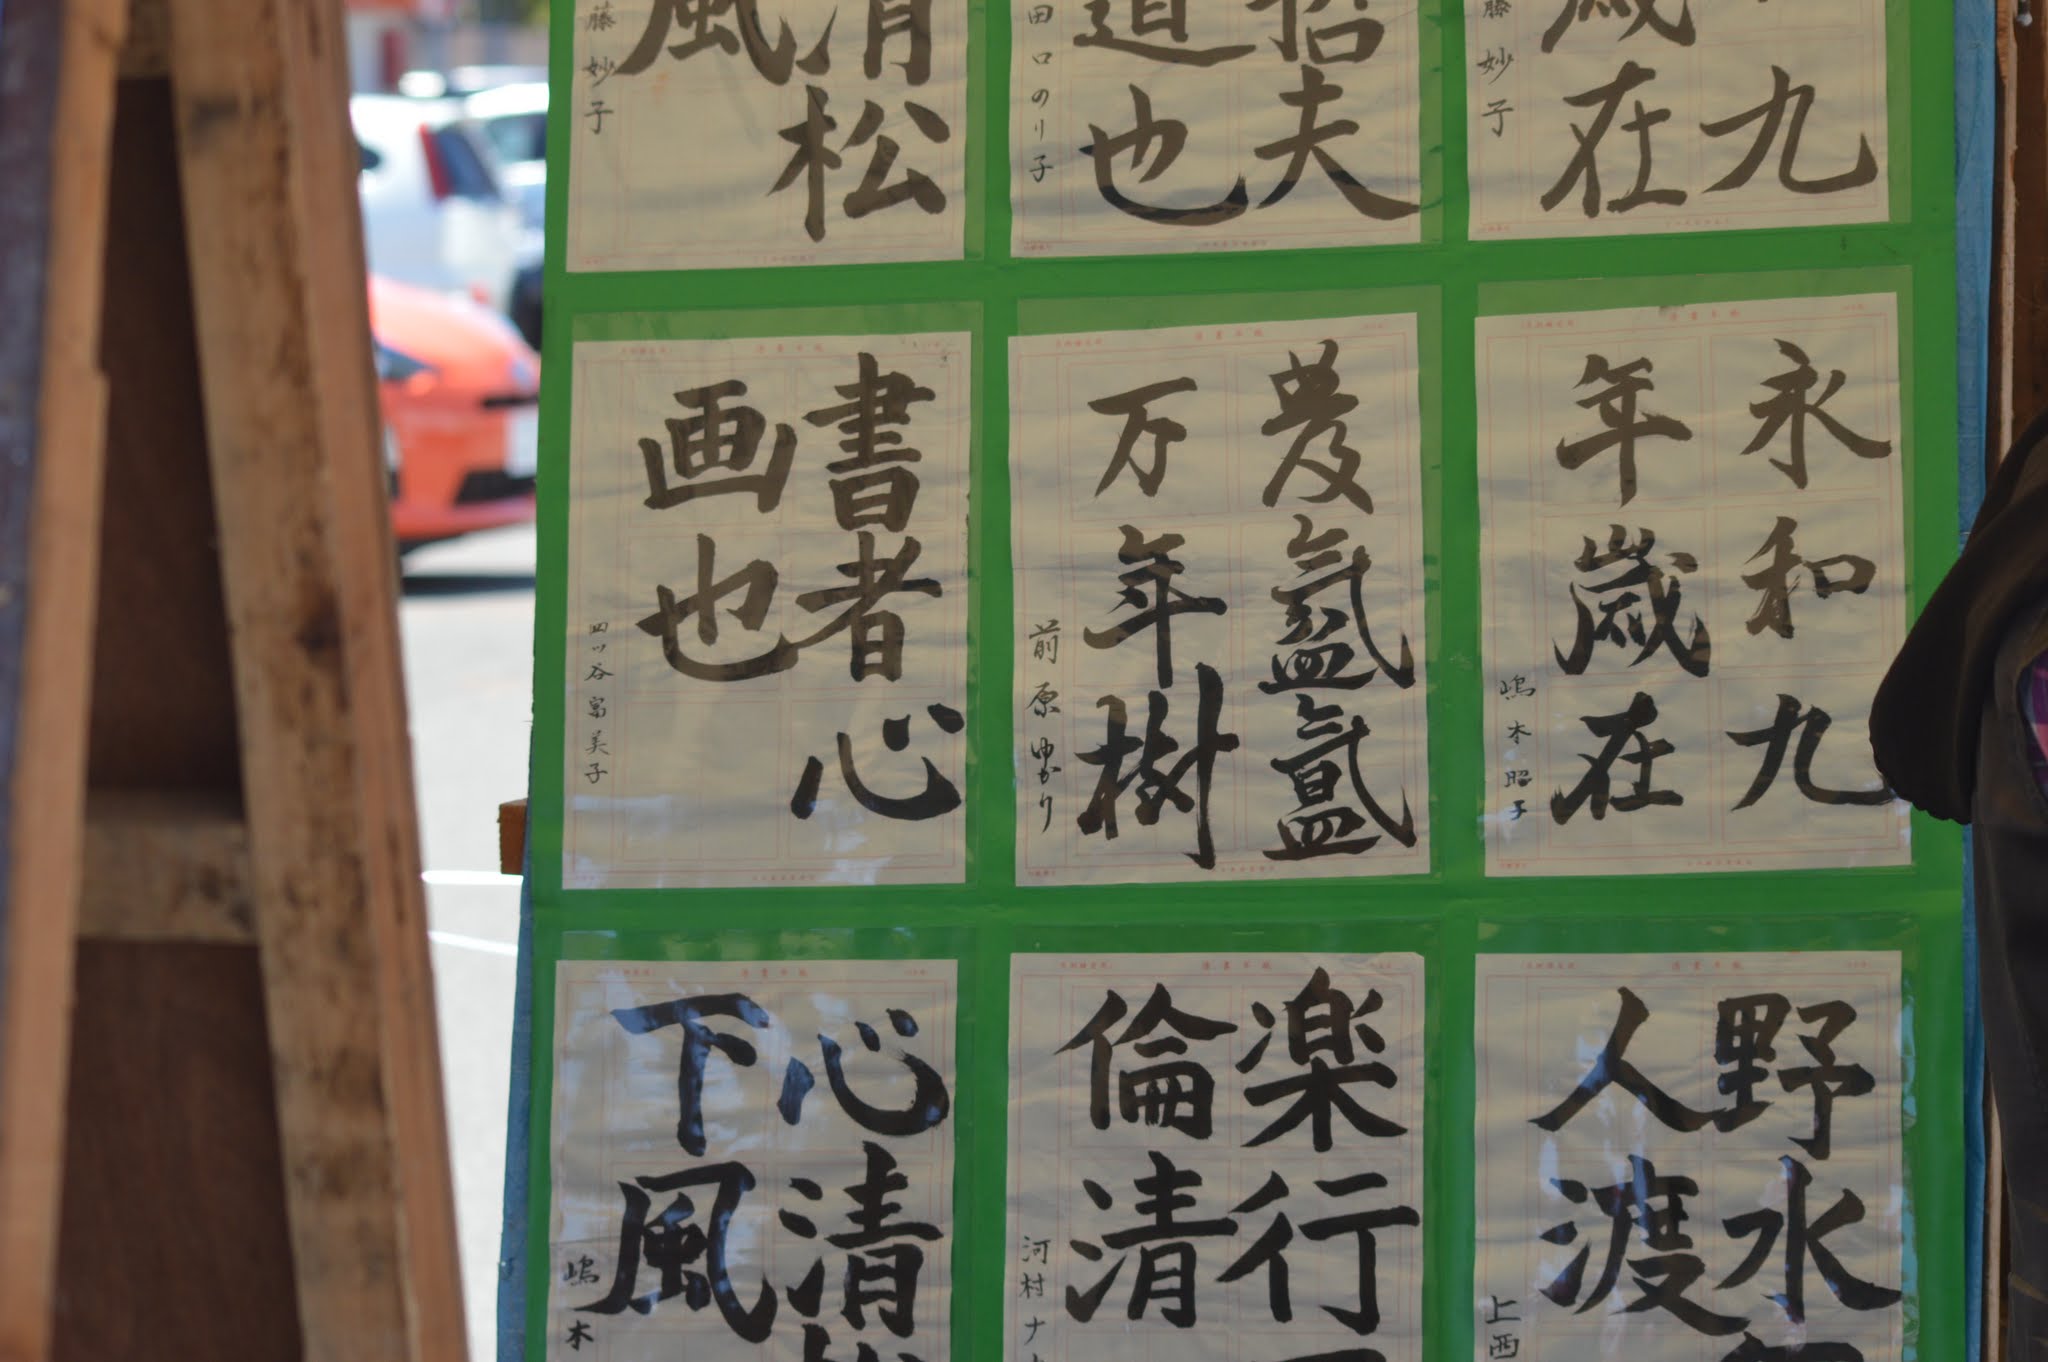 清松
風
藤妙子
哲夫
道也
田口のり子
九
歳在
藤妙子
書者心
画也
四ッ谷富美子
万年樹
前原ゆかり
永和九
年歳在
嶋本昭子
心清松
下風
嶋本
楽行
倫清
河村ナ
野水
人渡
上西